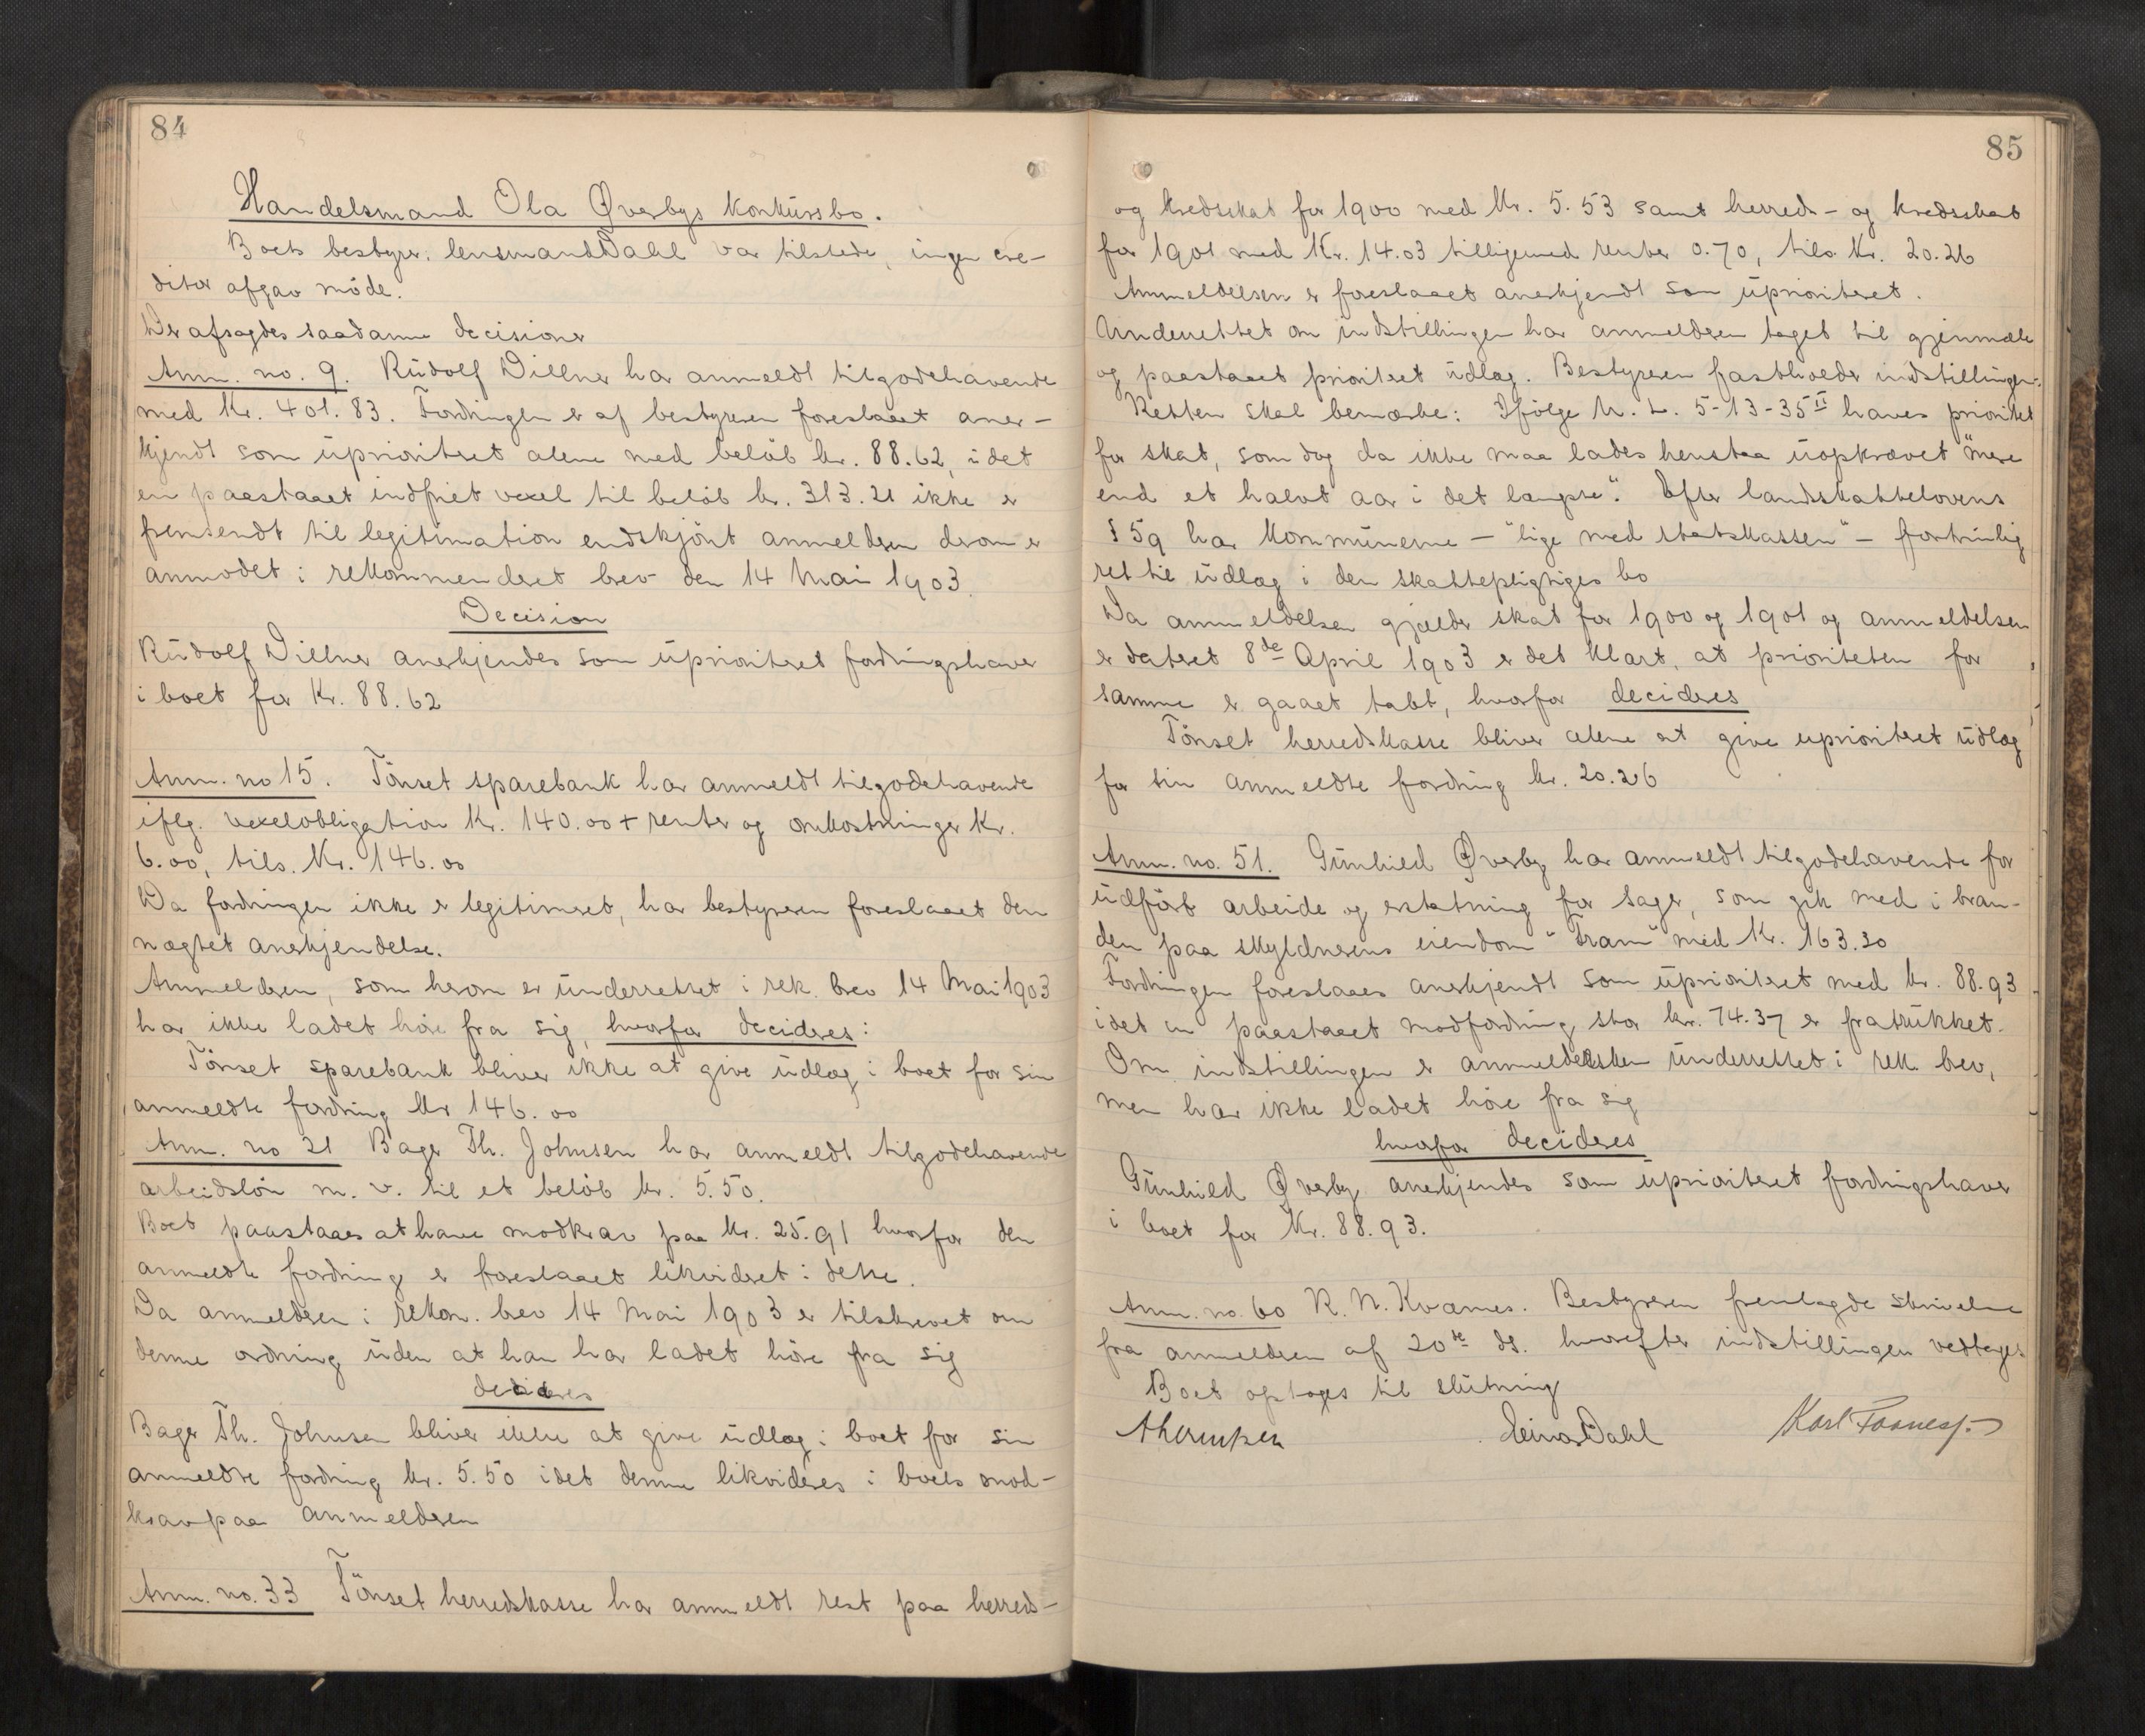 84
Handelsmand Ola Øverbys konkursbo.
Boets bestyrer, lensmand Dahl var tilstede, ingen cre-
ditor afgav möde.
Der afsagdes saadanne decisioner
Anm. no. 9. Rudolf Dillner har anmeldt tilgodehavende
med Kr. 401.83. Fordringen er af bestyreren foreslaaet aner-
kjendt som uprioriteret alene med beløb kr. 88.62, idet
en paastaaet indfriet vexel til beløb kr. 313.21 ikke er
fremsendt til legitimation endskjönt anmelderen derom er
anmodet i rekommenderet brev den 14 Mai 1903.
Decision
Rudolf Dillner anerkjendes som uprioriteret fordringshaver
i boet for Kr. 88.62
Anm. no 15. Tönset sparebank har anmeldt tilgodehavende
iflg. vexelobligation Kr. 140.00 + renter og omkostninger Kr.
6.00, tils. Kr. 146.00
Da fordringen ikke er legitimeret, har bestyreren foreslaaet den
nægtet anerkjendelse.
Anmelderen, som herom er underrettet i rek. brev 14 Mai 1903
har ikke ladet höre fra sig, hvorfor decideres:
Tönset sparebank bliver ikke at give udlæg i boet for sin
anmeldte fordring Kr 146.00
Anm. no 21 Bager Th. Johnsen har anmeldt tilgodehavende
arbeidslön m. v. til et belöb kr. 5.50.
Boet paastaaes at have modkrav paa Kr. 25.91 hvorfor den
anmeldte fordring er foreslaaet likvideret i dette.
Da anmelderen i rekom. brev 14 Mai 1903 er tilskrevet om
denne ordning uden at han har ladet höre fra sig
decideres
Bager Th. Johnsen bliver ikke at give udlæg i boet for sin
anmeldte fordring kr. 5.50 idet denne likvideres i boets mod-
krav paa anmelderen
Anm. no. 33 Tönset herredskasse har anmeldt rest paa herreds-
85
og kredsskat for 1900 med Kr. 5.53 samt herreds- og kredsskat
for 1901 med Kr. 14.03 tilligemed renter 0.70, tils. Kr. 20.26
Anmeldelsen er foreslaaet anerkjendt som uprioriteret.
Underrettet om indstillingen har anmelderen taget til gjenmæle
og paastaaet prioriteret udlæg. Bestyreren fastholder indstillingen.
Retten skal bemærke: Ifölge N. L. 5-13-35 II haves prioritet
for skat, som dog da ikke maa lades henstaa uopkrævet "mere
end et halvt aar i det længste". Efter landskattelovens
§ 59 har kommunerne - "lige med statskassen" - fortrinlig
ret til udlæg i den skattepligtiges bo
Da anmeldelsen gjælder skat for 1900 og 1901 og anmeldelsen
er dateret 8de April 1903 er det klart, at prioriteten for
samme er gaaet tabt, hvorfor decideres
Tönset herredskasse bliver alene at give uprioriteret udlæg
for sin anmeldte fordring kr. 20.26
Anm. no. 51. Gunhild Øverby har anmeldt tilgodehavende for
udfört arbeide og erstatning for sager, som gik med i bran-
den paa skyldnerens eiendom "Fram" med Kr. 163.30
Fordringen foreslaaes anerkjendt som uprioriteret med kr. 88.93
idet en paastaaet modfordring stor kr. 74.37 er fratrukket.
Om indstillingen er anmeldersken underrettet i rek. brev,
men har ikke ladet höre fra sig
hvorfor decideres
Gunhild Øverby anerkjendes som uprioriteret fordringshaver
i boet for Kr. 88.93.
Anm. no. 60 R. N. Kværnes. Bestyreren fremlagde skrivelse
fra anmelderen af 20de ds. hvorefter indstillingen vedtages
Boet optages til slutning
Einar Dahl